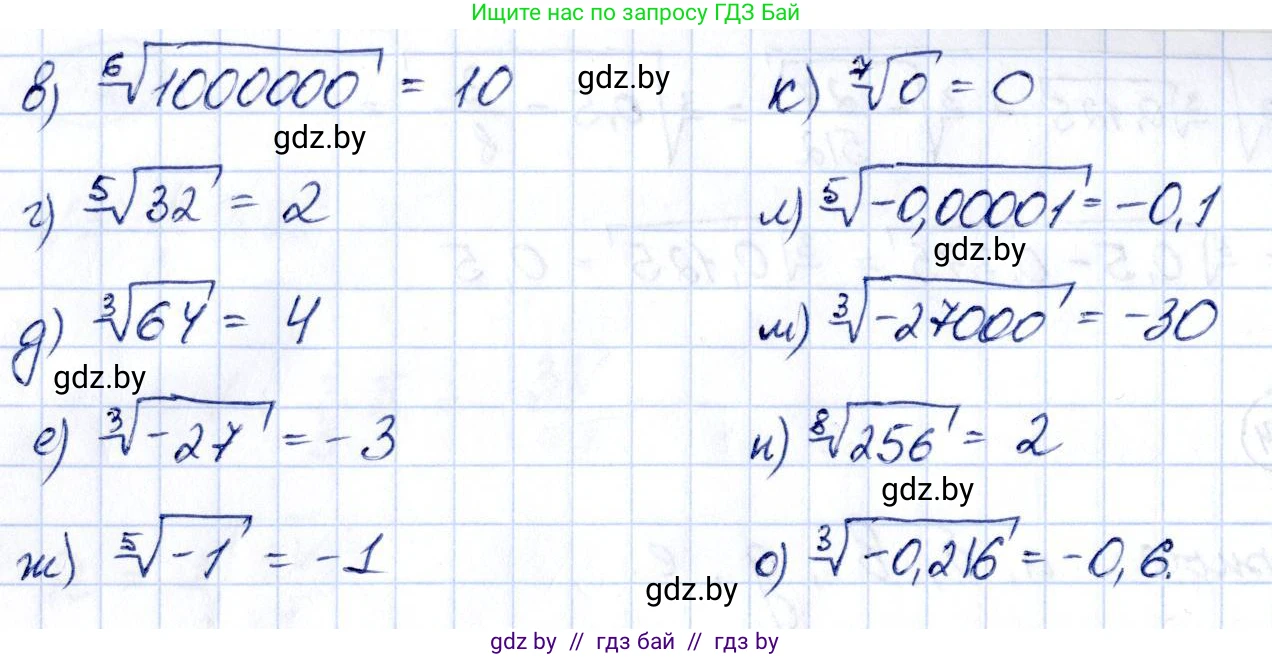 Ищите нас по запросу ГДЗ Бай
в) ⁶√1000000 = 10
gdz.by
к) ⁷√0 = 0
gdz.by
г) ⁵√32 = 2
л) ⁵√-0,00001 = -0,1
gdz.by
д) ³√64 = 4
м) ³√-27000 = -30
gdz.by
е) ³√-27 = -3
н) ⁸√256 = 2
gdz.by
ж) ⁵√-1 = -1
о) ³√-0,216 = -0,6.
gdz.by
gdz by // гдз бай // гдз by